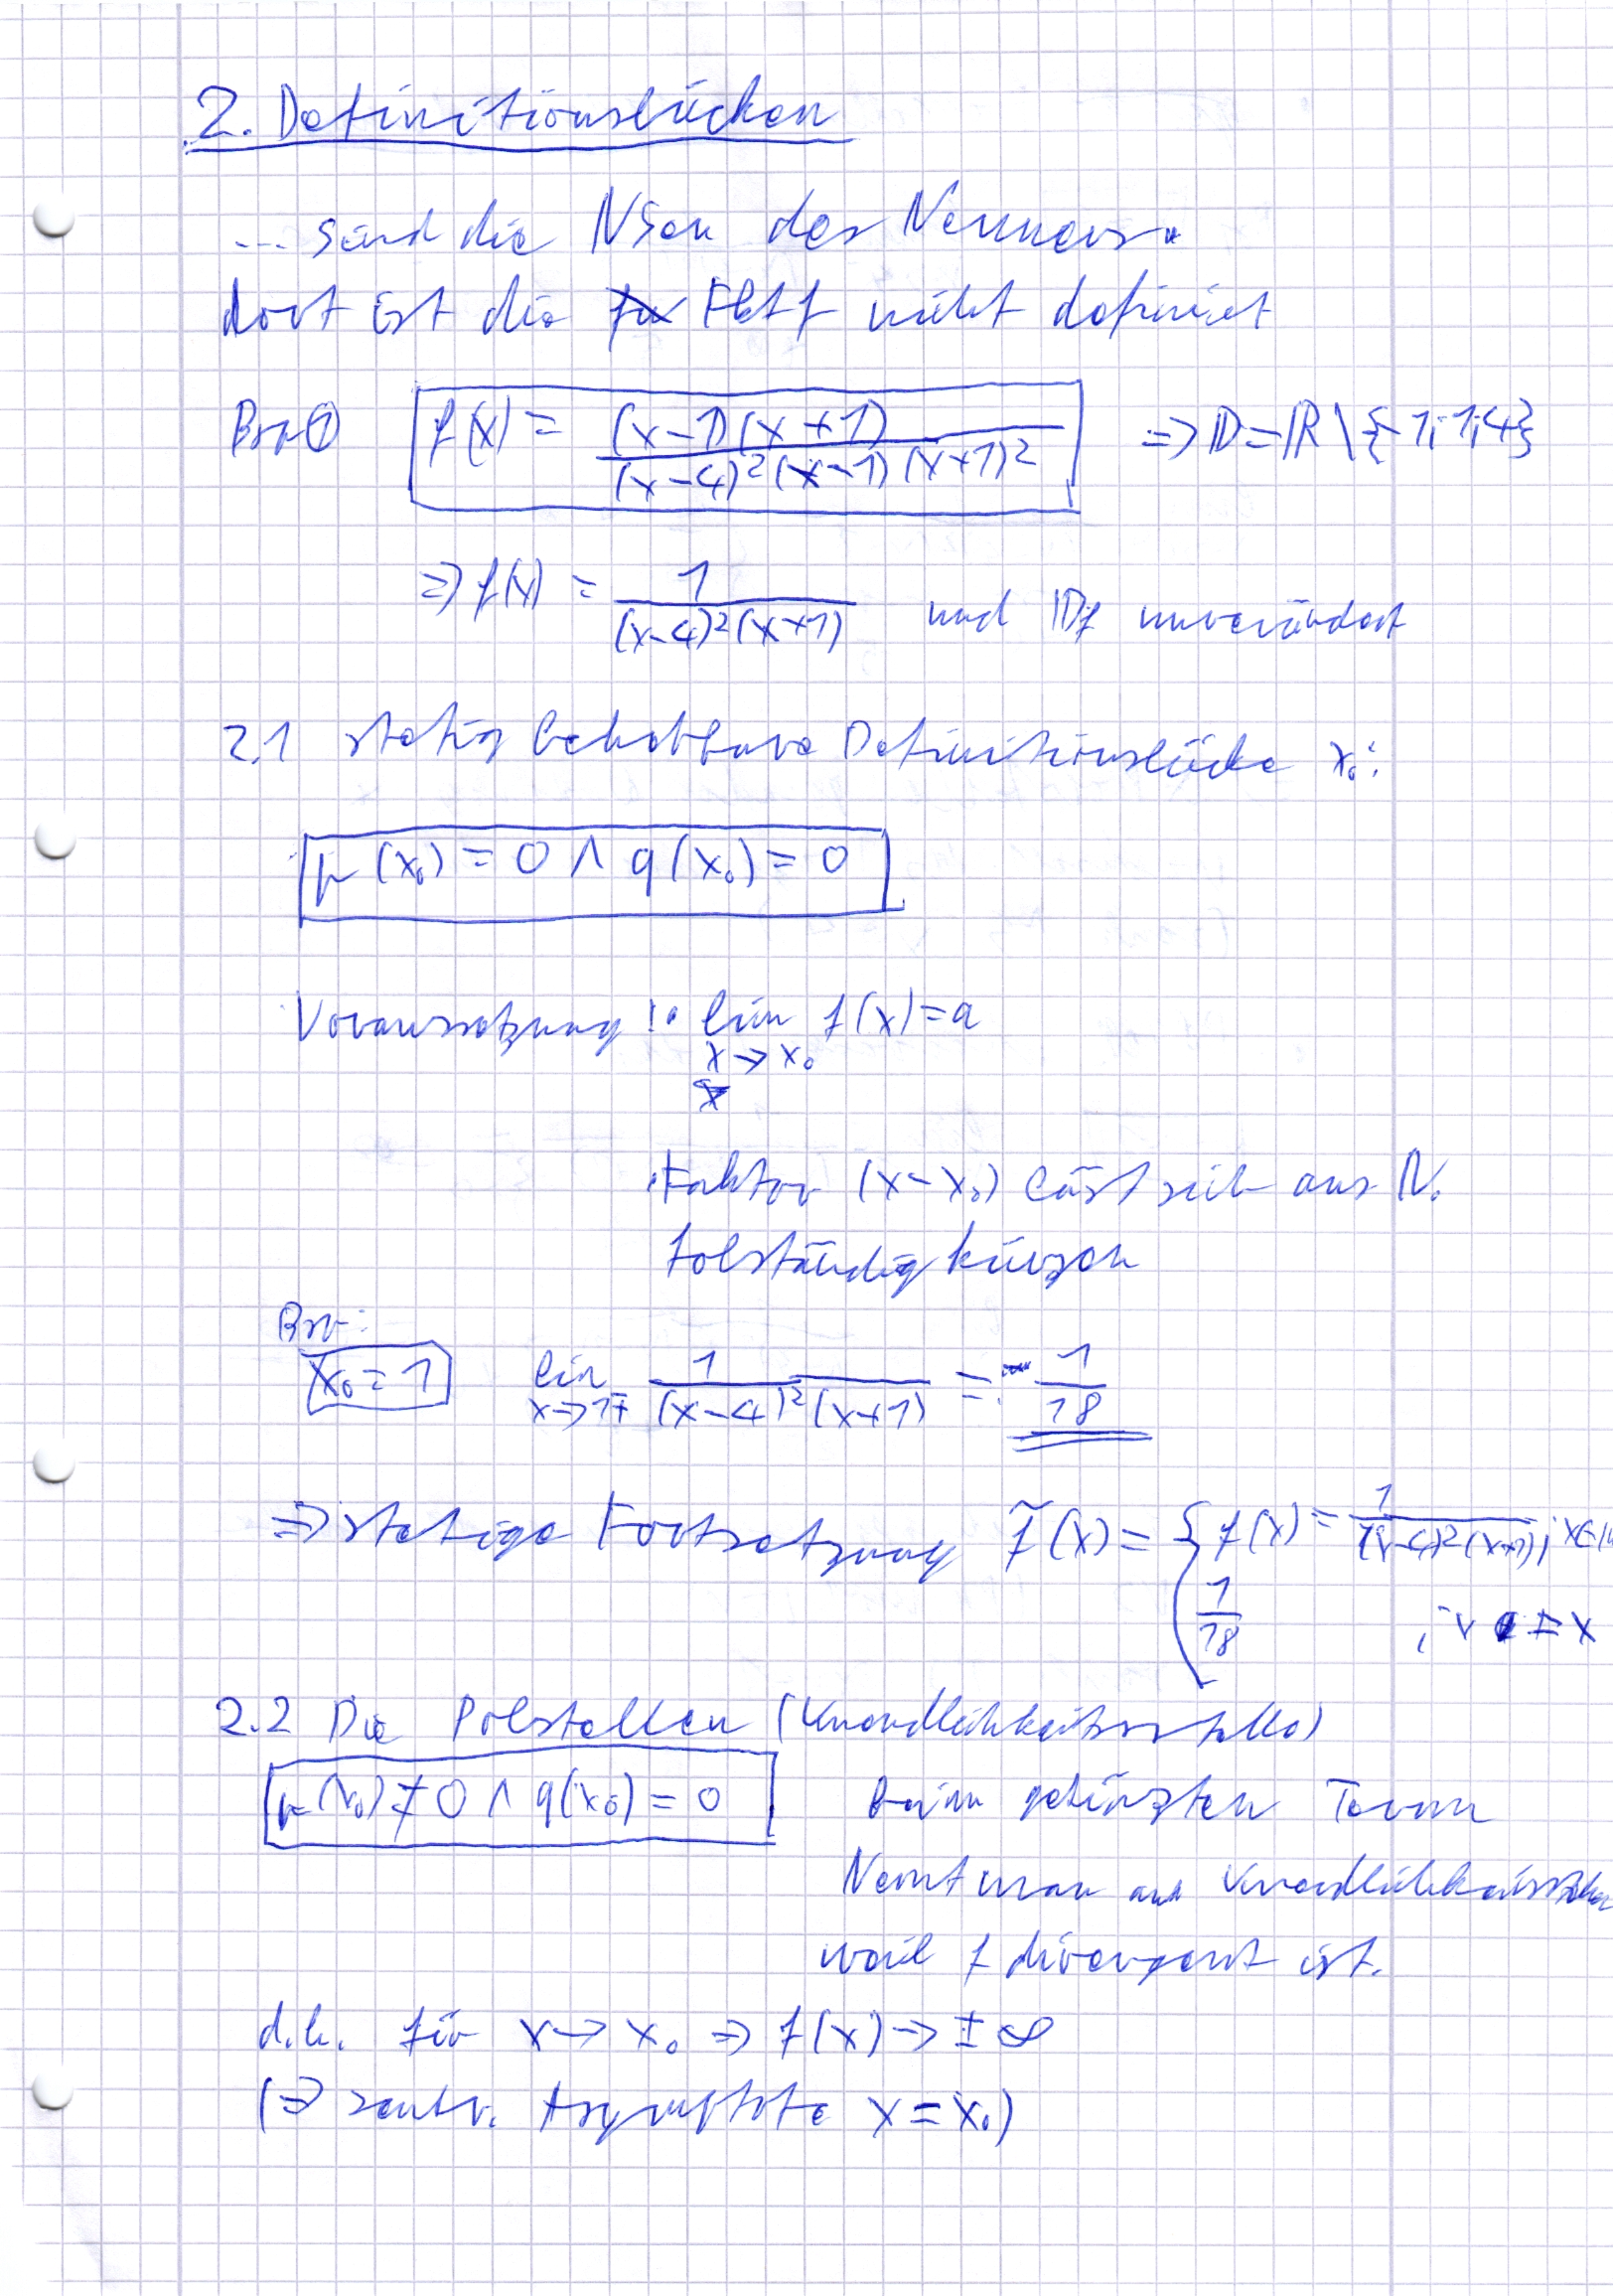 2. Definitionslücken
... sind die NSen des Nenners.
dort ist die Fkt f nicht definiert
Bsp ① f(x) = (x-1)(x+1) / (x-4)²(x-1)(x+1)² => D = ℝ \ {-1;1;4}
=> f(x) = 1 / (x-4)²(x+1) und Df unverändert
2.1 stetig behebbare Definitionslücke x₀:
p(x₀) = 0 ∧ q(x₀) = 0
Voraussetzung: lim f(x) = a
x → x₀
Faktor (x-x₀) läst sich aus N.
vollständig kürzen
Bsp:
x₀ = 1 lim x→1∓ 1 / (x-4)²(x+1) = 1/18
=> stetige Fortsetzung f̃(x) = { f(x) = 1 / (x-4)²(x+1) ; x∈
1/18 ;
2.2 Die Polstellen (Unendlichkeitsstelle)
p(x₀) ≠ 0 ∧ q(x₀) = 0 beim gekürzten Term
Nennt man auch Unendlichkeitsstellen
weil f divergent ist.
d.h. für x → x₀ => f(x) → ± ∞
(=> senkr. Asymptote x = x₀)